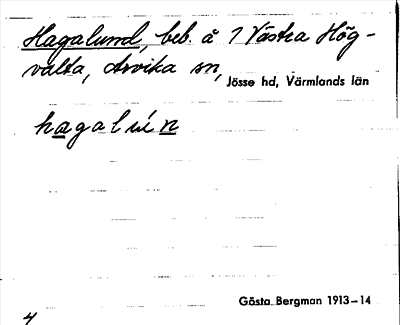 Hagalund, beb. å 1 Västra Hög-
valta, Arvika sn, Jösse hd, Värmlands län
hagalún
Gösta Bergman 1913–14
4